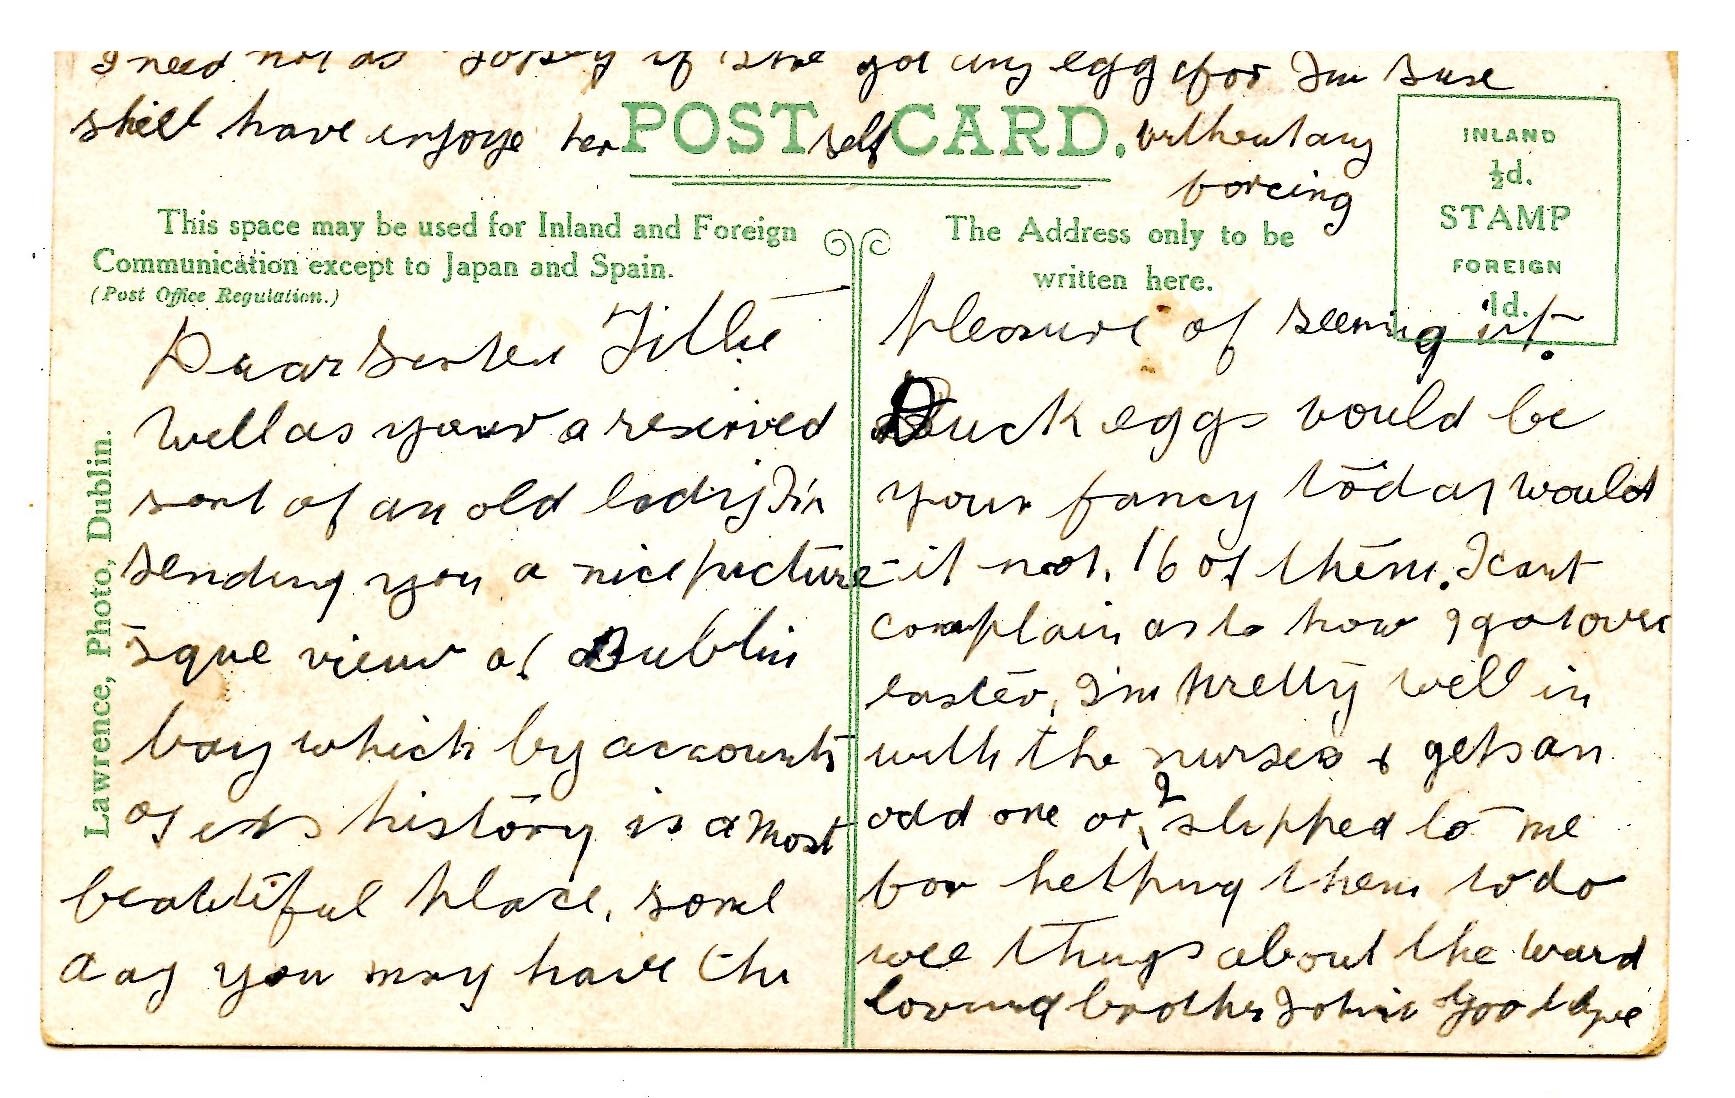 I need not as Topsy if she got any eggs for Im sure
shell have enjoye her self without any
forcing
POST CARD.
INLAND
½d.
STAMP
FOREIGN
1d.
This space may be used for Inland and Foreign
Communication except to Japan and Spain.
(Post Office Regulation.)
The Address only to be
written here.
Lawrence, Photo, Dublin.
Dear Sister Tillie
Well as your a reserved
sort of an old lady Im
sending you a nice picture
sque view of Dublin
bay which by accounts
of its history is a most
beautiful place, some
day you may have the
pleasure of seeing it.
Duck eggs would be
your fancy today would
it not. 16 of them. I cant
complain as to how I got over
easter, I'm pretty well in
with the nurses & gets an
odd one or 2 slipped to me
for helping them to do
wee things about the ward
loving brother John Good bye